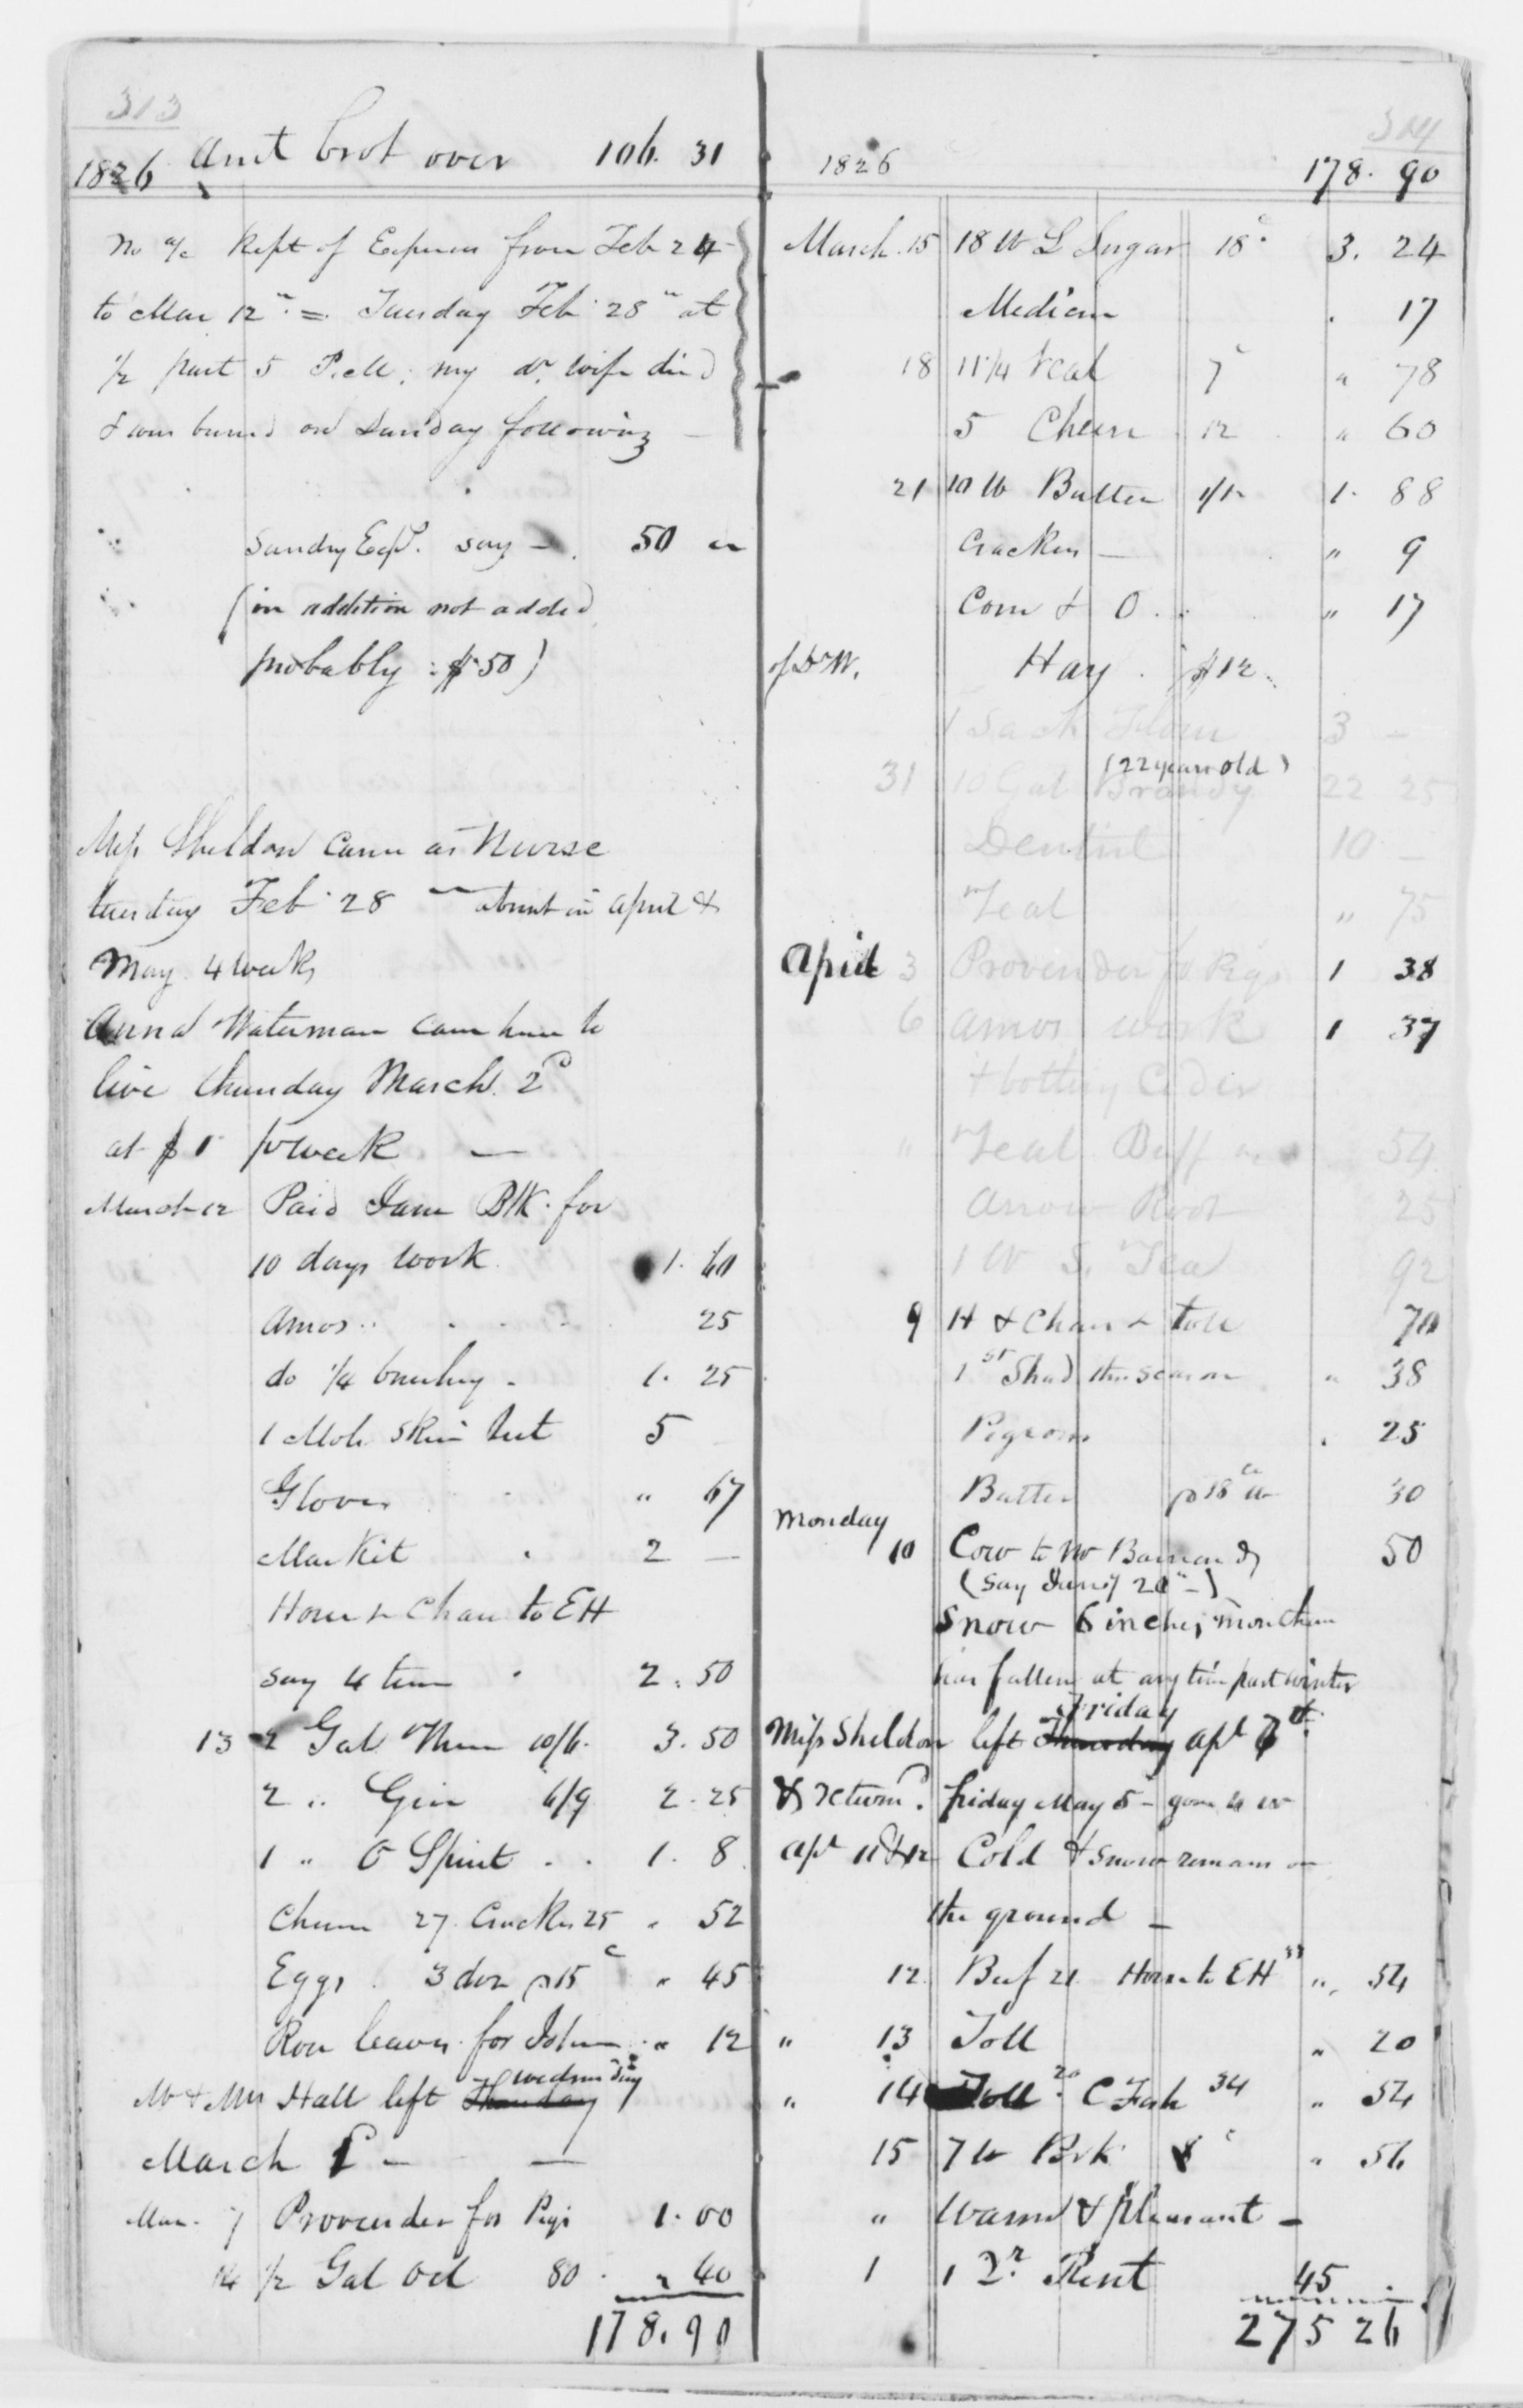 313
1826 Amt brot over 106. 31
No a/c Kept of Expences from Feb 24
to Mar 12th = Tuesday Feb 28th at
1/2 past 5 P.M. my dr. wife died
& was buried on Sunday following
Sandry Exps. say — 50 "
(in addition not added
probably $50)
Miss Sheldon came as Nurse
tuesday Feb 28 — absent in April &
May 4 weeks
Anna Waterman came here to
live thursday March 2d
at $1 pr week —
March 12 Paid Jane Blk. for
10 days work 1. 60
Amos 25
do 1/4 1. 25
1 Mole skin hat 5
Gloves " 67
Markit 2 —
Horse & Chaise to EH
say 4 times 2. 50
13 2 Gal Rum 10/6 3. 50
2 " Gin 6/9 2. 25
1 " O Spirit 1. 8
Cheese 27 Crackers 25 " 52
Eggs 3 doz p 15c " 45
leaves for John " 12
Mr & Mrs Hall left Thursday wednesday
March 1 — —
Mar. 7 Provender for Pigs 1. 00
14 1/2 Gal Oil 80 " 40
178. 90
314
1826 178. 90
March 15 18 lb L Sugar 18c 3. 24
Medicine 17
18 11 1/4 Veal 7c " 78
5 Cheese 12 " 60
21 10 lb Butter 1/1 1. 88
Crackers — " 9
Corn & O " 17
of Dr W. Hay $12
1 Sack Flour 3 —
(22 years old)
31 10 Gal Brandy 22 25
Dentist 10 —
Veal " 75
April 3 Provender for Pigs 1 38
6 Amos work 1 37
& bottling Cider
" Veal Beff 54
Arrow Root 25
1 lb S. Tea 92
9 H & Chaise & toll 70
1st Shad this season " 38
Pigeons 25
Butter p 18c lb 30
Monday
10 Cow to Mr Barnard 50
(say Jany 20th —)
Snow 6 inches, more than
has fallen at any time past winter
Miss Sheldon left Thursday Friday apl 7th.
& returnd. friday May 5 — gone 4 w
Apl 11 & 12 Cold & snow remains on
the ground —
12 Beef 21 Horse to EH 33 " 54
" 13 Toll " 20
" 14 Toll 20 C Fish 34 " 54
15 7 lb Pork 8c " 56
" Warm & pleasant —
1 1 Qr. Rent 45
275 26